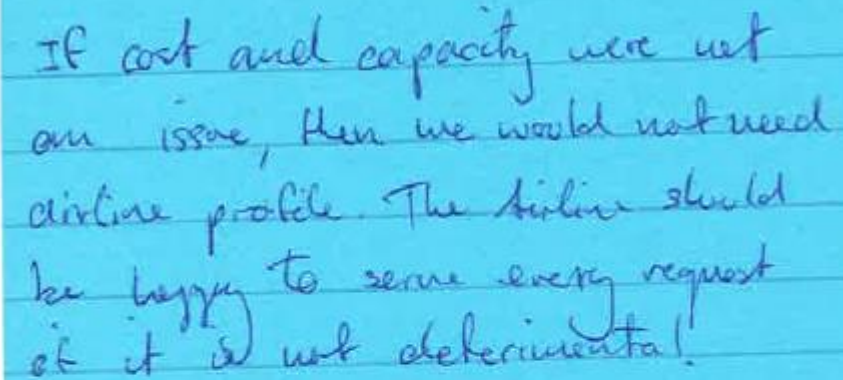 If cost and capacity were not
an issue, then we would not need
airline profile. The Airline should
be happy to serve every request
if it is not deterimental.